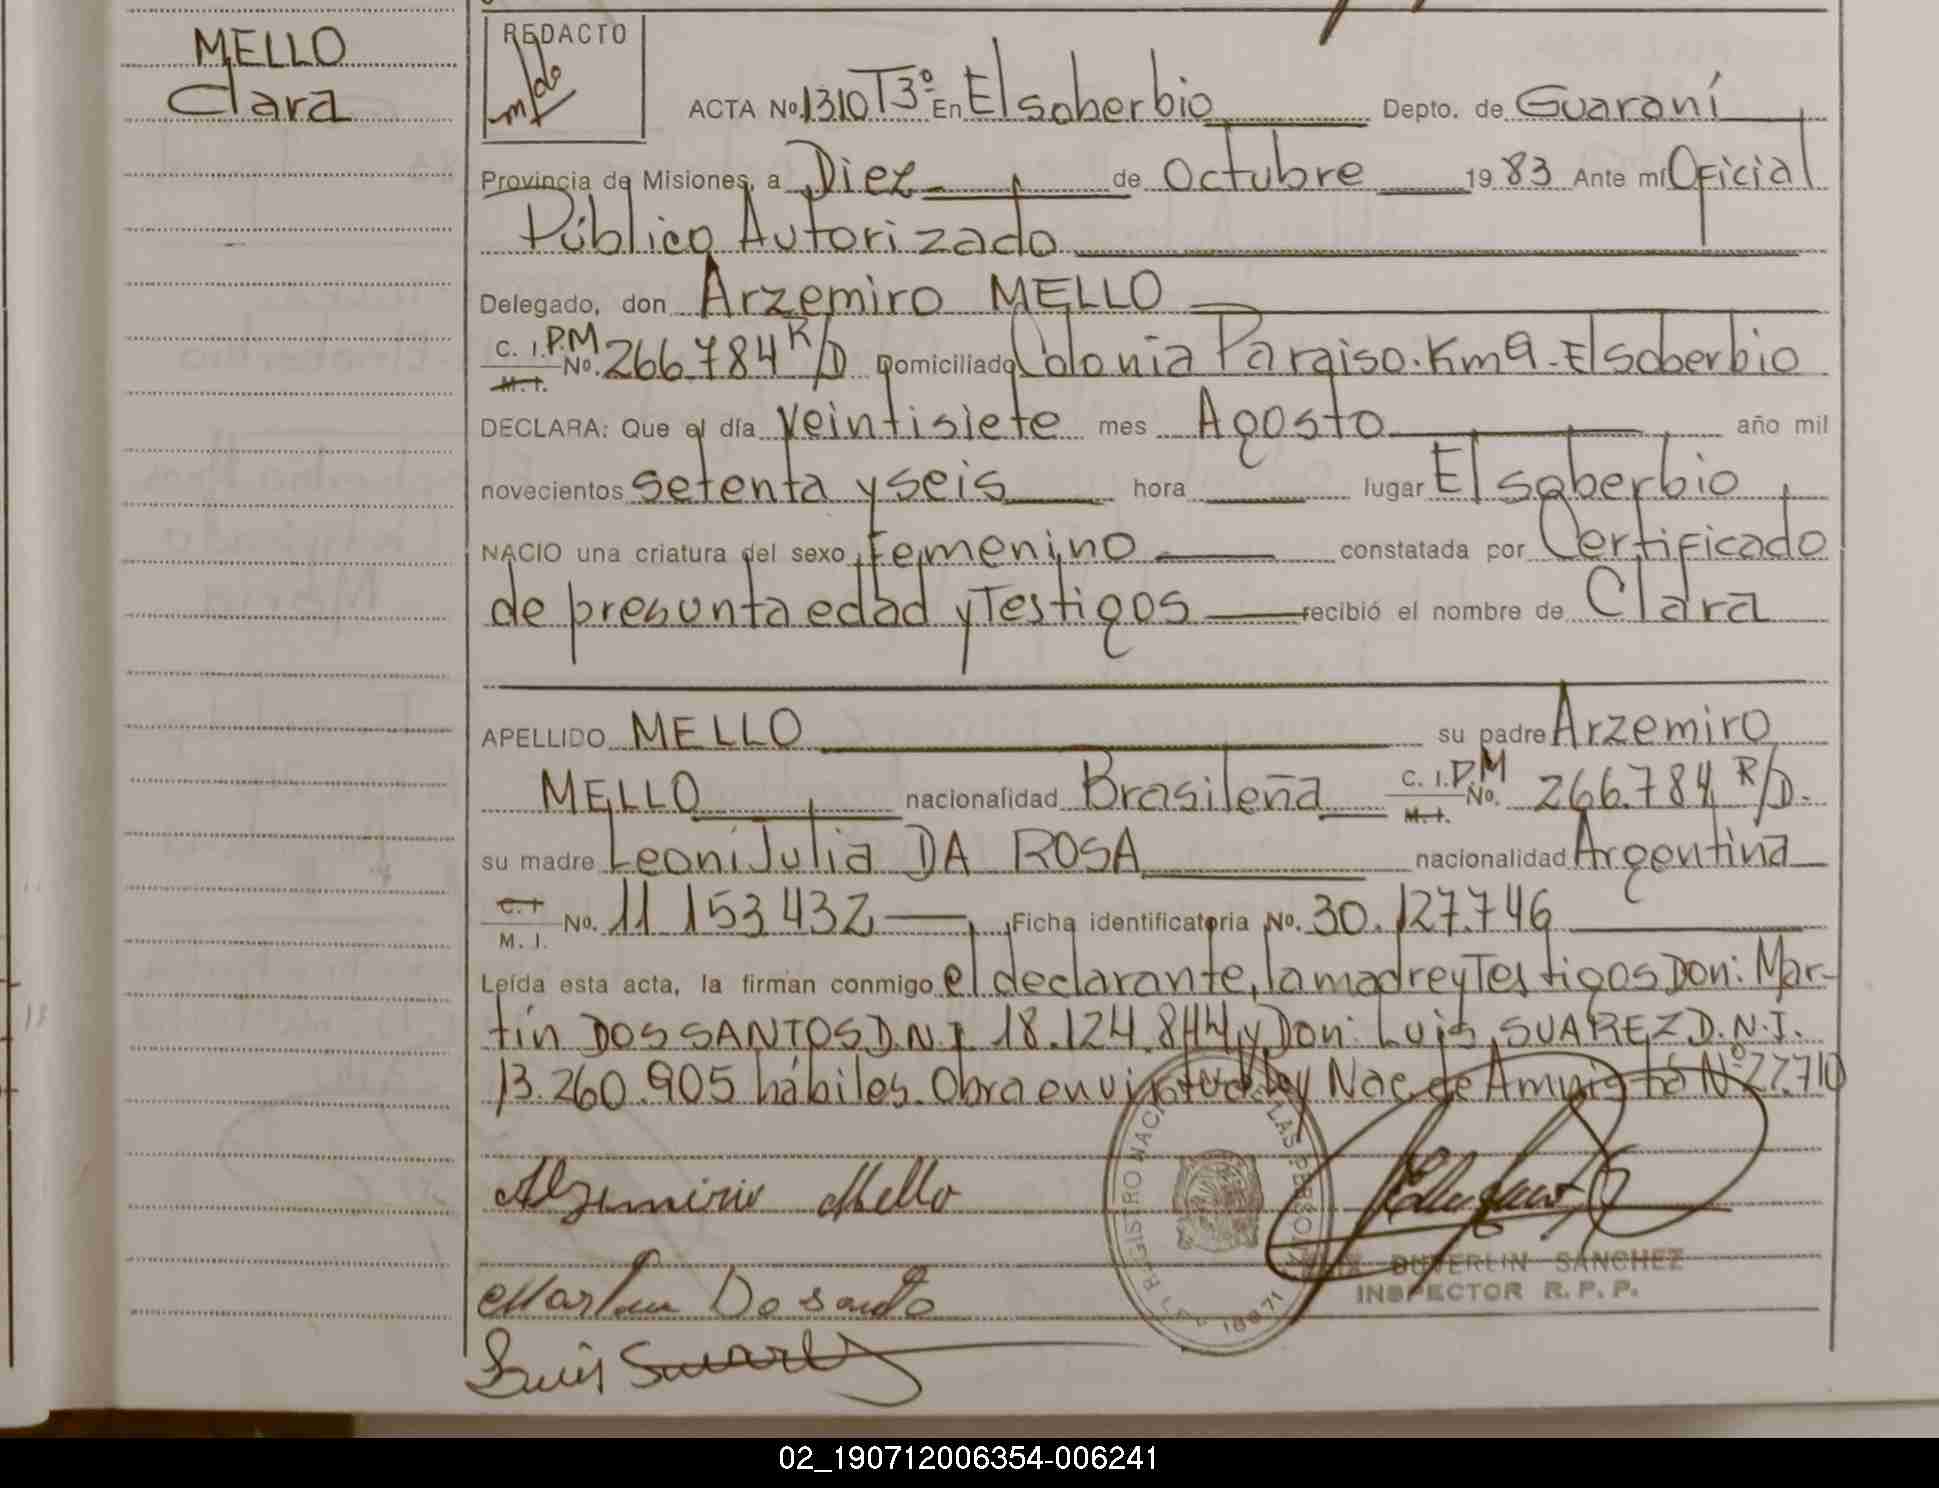 MELLO
Clara
REDACTO
ACTA No. 1310 T3º En El soberbio Depto. de Guaraní
Provincia de Misiones, a Diez de Octubre 19 83 Ante mí Oficial
Público Autorizado
Delegado, don Arzemiro MELLO
C. I. P.M M. I. No. 266.784 R/D Domiciliado Colonia Paraiso. Km 9 - El soberbio
DECLARA: Que el día Veintisiete mes Agosto año mil
novecientos setenta y seis hora lugar El soberbio
NACIO una criatura del sexo Femenino constatada por Certificado
de presunta edad y Testigos recibió el nombre de Clara
APELLIDO MELLO su padre Arzemiro
MELLO nacionalidad Brasileña C. I. P.M M. I. No. 266.784 R/D.
su madre Leoni Julia DA ROSA nacionalidad Argentina
C. I M. I. No. 11 153 432 Ficha identificatoria No. 30.127.746
Leída esta acta, la firman conmigo el declarante, la madre y Testigos Don: Mar-
tín DOS SANTOS D.N.I 18.124.844 y Don: Luis SUAREZ D.N.I.
13.260.905 hábiles. Obra en virtud ley Nac de Amnistía Nº 22.710
Alzemirio Mello
REGISTRO NACI LAS PERSONAS
DUVERLIN SANCHEZ
INSPECTOR R. P. P.
Martin Dosanto
Luis Suarez
02_190712006354-006241